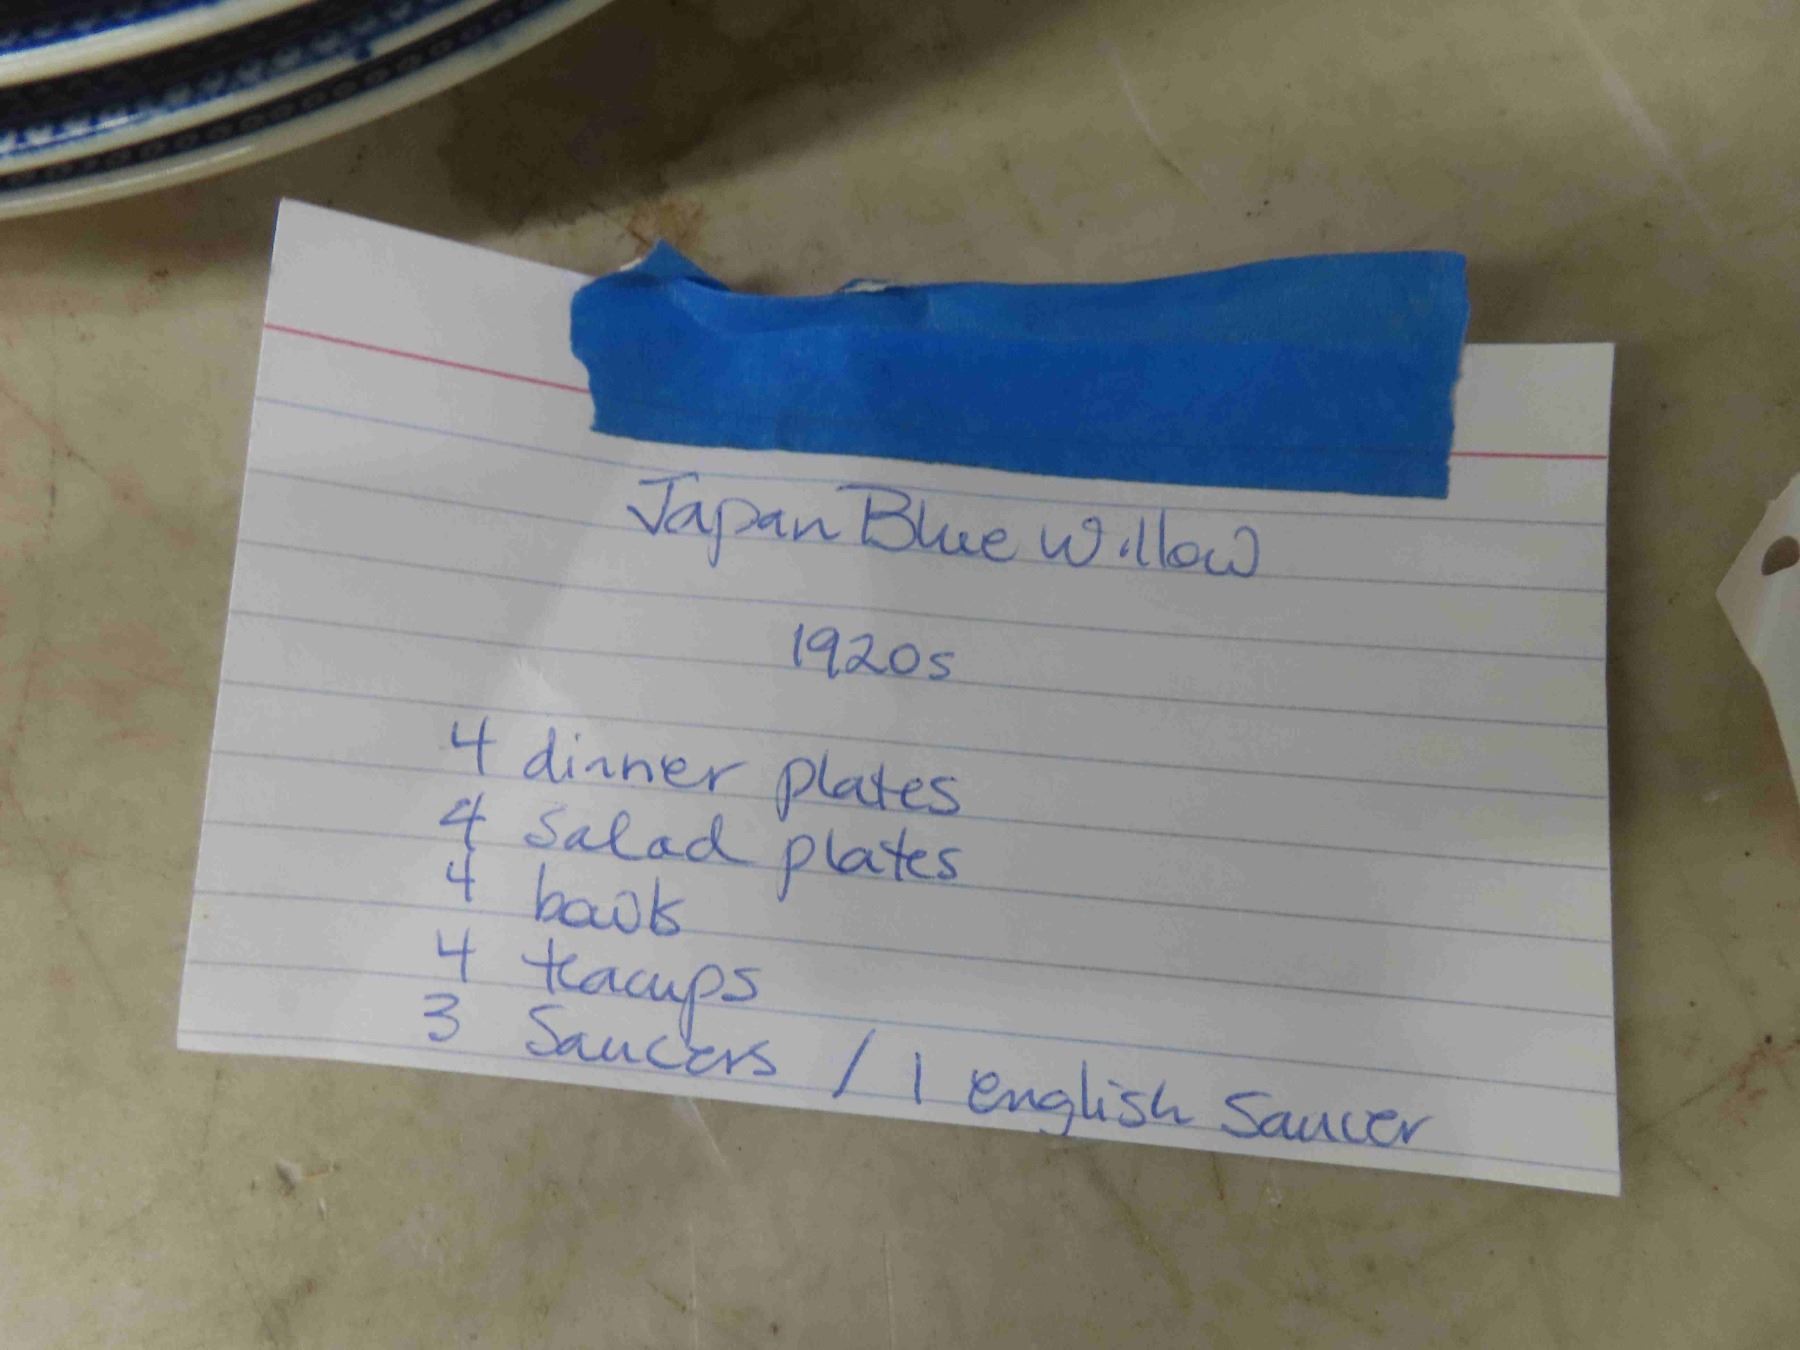 Japan Blue Willow
1920s
4 dinner plates
4 salad plates
4 bowls
4 teacups
3 Saucers / 1 english Saucer